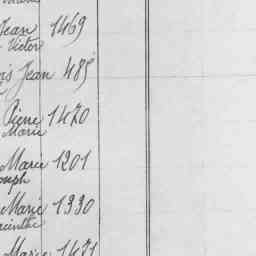 Jean 1469
Victor
is Jean 485
Aimé 1470
Marie
Marie 1201
oseph
Marie 1330
acinthe
Marie 1471